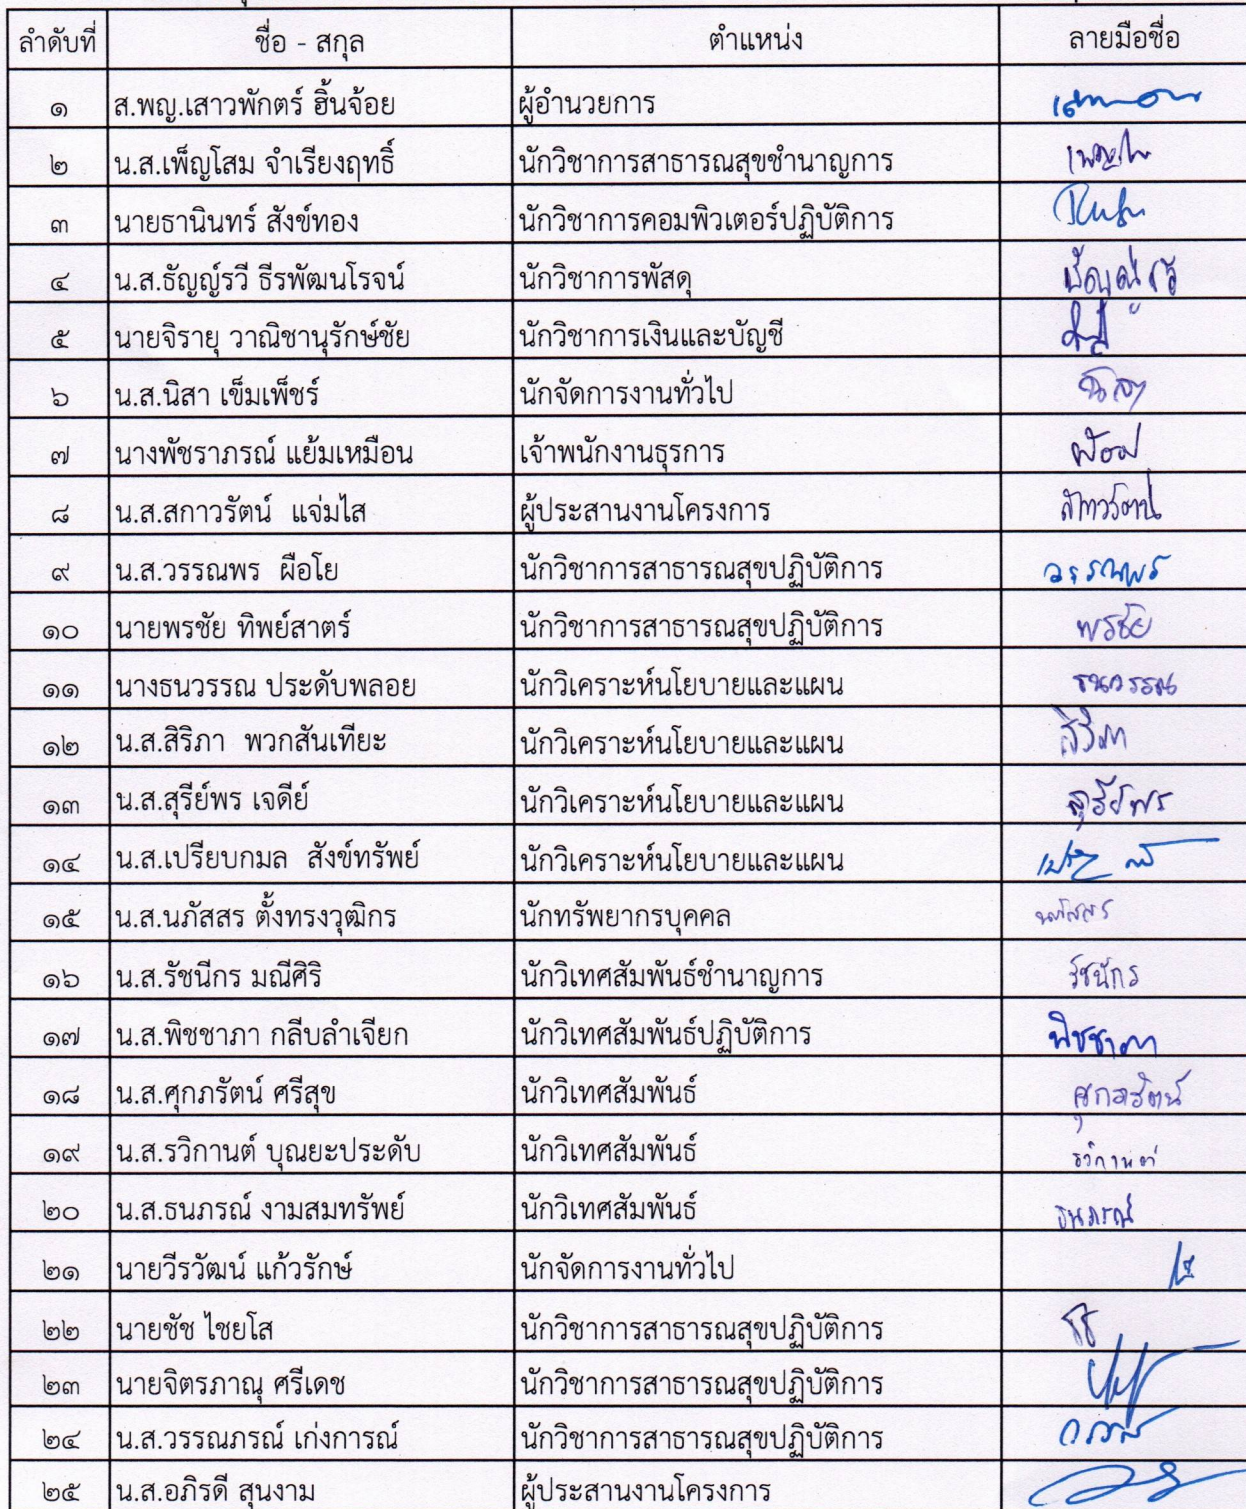 ลำดับที่ ชื่อ - สกุล ตำแหน่ง ลายมือชื่อ
๑ ส.พญ.เสาวพักตร์ ฮิ้นจ้อย ผู้อำนวยการ
๒ น.ส.เพ็ญโสม จำเรียงฤทธิ์ นักวิชาการสาธารณสุขชำนาญการ
๓ นายธานินทร์ สังข์ทอง นักวิชาการคอมพิวเตอร์ปฏิบัติการ
๔ น.ส.ธัญญ์รวี ธีรพัฒนโรจน์ นักวิชาการพัสดุ
๕ นายจิรายุ วาณิชานุรักษ์ชัย นักวิชาการเงินและบัญชี
๖ น.ส.นิสา เข็มเพ็ชร์ นักจัดการงานทั่วไป
๗ นางพัชราภรณ์ แย้มเหมือน เจ้าพนักงานธุรการ
๘ น.ส.สกาวรัตน์ แจ่มใส ผู้ประสานงานโครงการ สกาวรัตน์
๙ น.ส.วรรณพร ผือโย นักวิชาการสาธารณสุขปฏิบัติการ วรรณพร
๑๐ นายพรชัย ทิพย์สาตร์ นักวิชาการสาธารณสุขปฏิบัติการ พรชัย
๑๑ นางธนวรรณ ประดับพลอย นักวิเคราะห์นโยบายและแผน ธนวรรณ
๑๒ น.ส.สิริภา พวกสันเทียะ นักวิเคราะห์นโยบายและแผน สิริภา
๑๓ น.ส.สุรีย์พร เจดีย์ นักวิเคราะห์นโยบายและแผน สุรีย์พร
๑๔ น.ส.เปรียบกมล สังข์ทรัพย์ นักวิเคราะห์นโยบายและแผน
๑๕ น.ส.นภัสสร ตั้งทรงวุฒิกร นักทรัพยากรบุคคล นภัสสร
๑๖ น.ส.รัชนีกร มณีศิริ นักวิเทศสัมพันธ์ชำนาญการ รัชนีกร
๑๗ น.ส.พิชชาภา กลีบลำเจียก นักวิเทศสัมพันธ์ปฏิบัติการ พิชชาภา
๑๘ น.ส.ศุกภรัตน์ ศรีสุข นักวิเทศสัมพันธ์ ศุกภรัตน์
๑๙ น.ส.รวิกานต์ บุณยะประดับ นักวิเทศสัมพันธ์ รวิกานต์
๒๐ น.ส.ธนภรณ์ งามสมทรัพย์ นักวิเทศสัมพันธ์ ธนภรณ์
๒๑ นายวีรวัฒน์ แก้วรักษ์ นักจัดการงานทั่วไป
๒๒ นายชัช ไชยโส นักวิชาการสาธารณสุขปฏิบัติการ
๒๓ นายจิตรภาณุ ศรีเดช นักวิชาการสาธารณสุขปฏิบัติการ
๒๔ น.ส.วรรณภรณ์ เก่งการณ์ นักวิชาการสาธารณสุขปฏิบัติการ
๒๕ น.ส.อภิรดี สุนงาม ผู้ประสานงานโครงการ